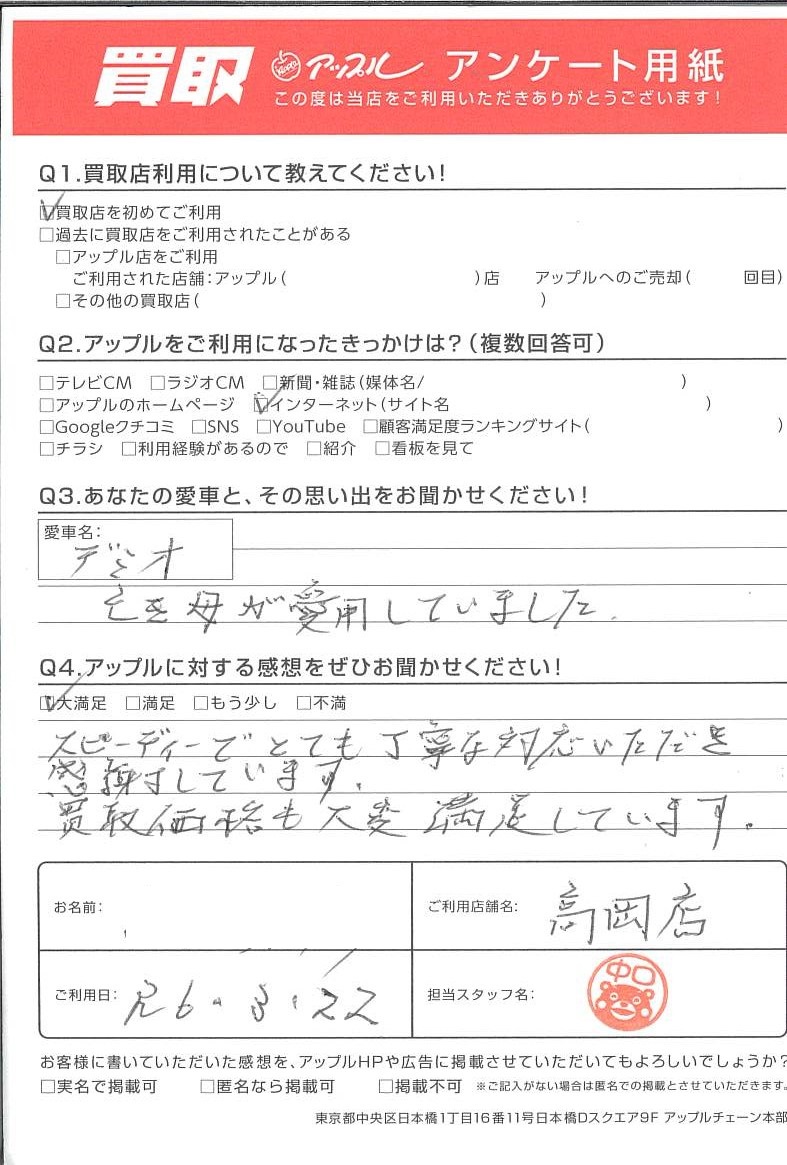 買取 アップル アンケート用紙
この度は当店をご利用いただきありがとうございます!
Q1.買取店利用について教えてください!
☑買取店を初めてご利用
□過去に買取店をご利用されたことがある
□アップル店をご利用
ご利用された店舗:アップル( )店 アップルへのご売却( 回目)
□その他の買取店( )
Q2.アップルをご利用になったきっかけは?(複数回答可)
□テレビCM □ラジオCM □新聞・雑誌(媒体名/ )
□アップルのホームページ ☑インターネット(サイト名 )
□Googleクチコミ □SNS □YouTube □顧客満足度ランキングサイト( )
□チラシ □利用経験があるので □紹介 □看板を見て
Q3.あなたの愛車と、その思い出をお聞かせください!
愛車名:
デミオ
亡き母が愛用していました.
Q4.アップルに対する感想をぜひお聞かせください!
☑大満足 □満足 □もう少し □不満
スピーディーでとても丁寧な対応いただき
感謝しています.
買取価格も大変満足しています.
お名前:
ご利用店舗名: 高岡店
ご利用日: R6.3.22
担当スタッフ名: 中口
お客様に書いていただいた感想を、アップルHPや広告に掲載させていただいてもよろしいでしょうか?
□実名で掲載可 □匿名なら掲載可 □掲載不可 ※ご記入がない場合は匿名での掲載とさせていただきます。
東京都中央区日本橋1丁目16番11号日本橋Dスクエア9F アップルチェーン本部